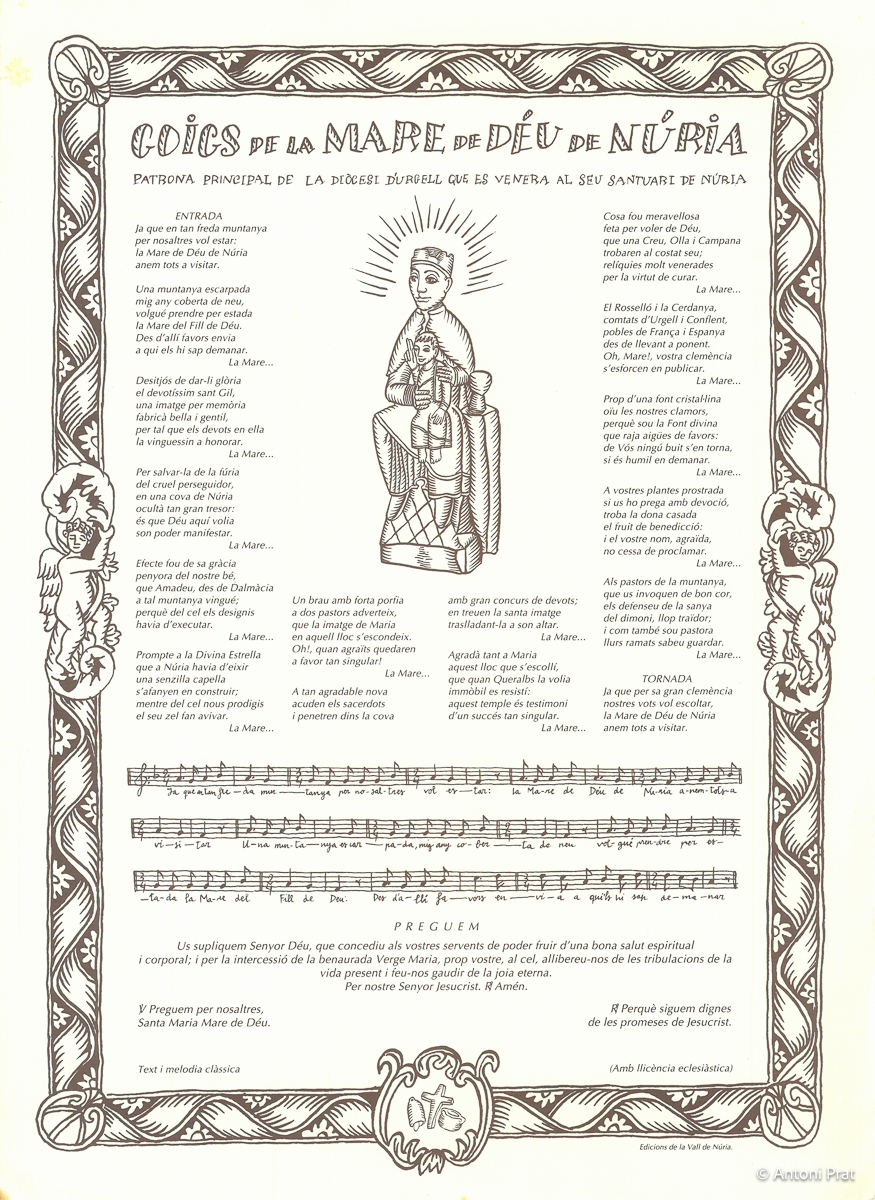 GOIGS DE LA MARE DE DÉU DE NÚRIA
PATRONA PRINCIPAL DE LA DIÒCESI D'URGELL QUE ES VENERA AL SEU SANTUARI DE NÚRIA
ENTRADA
Ja que en tan freda muntanya
per nosaltres vol estar:
la Mare de Déu de Núria
anem tots a visitar.
Una muntanya escarpada
mig any coberta de neu,
volgué prendre per estada
la Mare del Fill de Déu.
Des d'allí favors envia
a qui els hi sap demanar.
La Mare...
Desitjós de dar-li glòria
el devotíssim sant Gil,
una imatge per memòria
fabricà bella i gentil,
per tal que els devots en ella
la vinguessin a honorar.
La Mare...
Per salvar-la de la fúria
del cruel perseguidor,
en una cova de Núria
ocultà tan gran tresor:
és que Déu aquí volia
son poder manifestar.
La Mare...
Efecte fou de sa gràcia
penyora del nostre bé,
que Amadeu, des de Dalmàcia
a tal muntanya vingué;
perquè del cel els designis
havia d'executar.
La Mare...
Prompte a la Divina Estrella
que a Núria havia d'eixir
una senzilla capella
s'afanyen en construir;
mentre del cel nous prodigis
el seu zel fan avivar.
La Mare...
Un brau amb forta porfia
a dos pastors adverteix,
que la imatge de Maria
en aquell lloc s'escondeix.
Oh!, quan agraïts quedaren
a favor tan singular!
La Mare...
A tan agradable nova
acuden els sacerdots
i penetren dins la cova
amb gran concurs de devots;
en treuen la santa imatge
traslladant-la a son altar.
La Mare...
Agradà tant a Maria
aquest lloc que s'escollí,
que quan Queralbs la volia
immòbil es resistí:
aquest temple és testimoni
d'un succés tan singular.
La Mare...
Cosa fou meravellosa
feta per voler de Déu,
que una Creu, Olla i Campana
trobaren al costat seu;
relíquies molt venerades
per la virtut de curar.
La Mare...
El Rosselló i la Cerdanya,
comtats d'Urgell i Conflent,
pobles de França i Espanya
des de llevant a ponent.
Oh, Mare!, vostra clemència
s'esforcen en publicar.
La Mare...
Prop d'una font cristal·lina
oïu les nostres clamors,
perquè sou la Font divina
que raja aigües de favors:
de Vós ningú buit s'en torna,
si és humil en demanar.
La Mare...
A vostres plantes prostrada
si us ho prega amb devoció,
troba la dona casada
el fruit de benedicció:
i el vostre nom, agraïda,
no cessa de proclamar.
La Mare...
Als pastors de la muntanya,
que us invoquen de bon cor,
els defenseu de la sanya
del dimoni, llop traïdor;
i com també sou pastora
llurs ramats sabeu guardar.
La Mare...
TORNADA
Ja que per sa gran clemència
nostres vots vol escoltar,
la Mare de Déu de Núria
anem tots a visitar.
Ja que en tan fre—da mun——tanya per no-sal-tres vol es—tar: la Ma-re de Déu de Nu-ria a-nem-tots-a
vi—si—tar U-na mun-ta—nya es car—pa-da, mig any co-ber—ta de neu vol-gué pen-dre per es-
—ta-da la Ma-re del Fill de Deu: Des d'a-llí fa—vors en—vi—a a qui ls hi sap de-ma-nar
PREGUEM
Us supliquem Senyor Déu, que concediu als vostres servents de poder fruir d'una bona salut espiritual
i corporal; i per la intercessió de la benaurada Verge Maria, prop vostre, al cel, allibereu-nos de les tribulacions de la
vida present i feu-nos gaudir de la joia eterna.
Per nostre Senyor Jesucrist. ℟ Amén.
℣ Preguem per nosaltres,
Santa Maria Mare de Déu.
℟ Perquè siguem dignes
de les promeses de Jesucrist.
Text i melodia clàssica
(Amb llicència eclesiàstica)
Edicions de la Vall de Núria.
© Antoni Prat